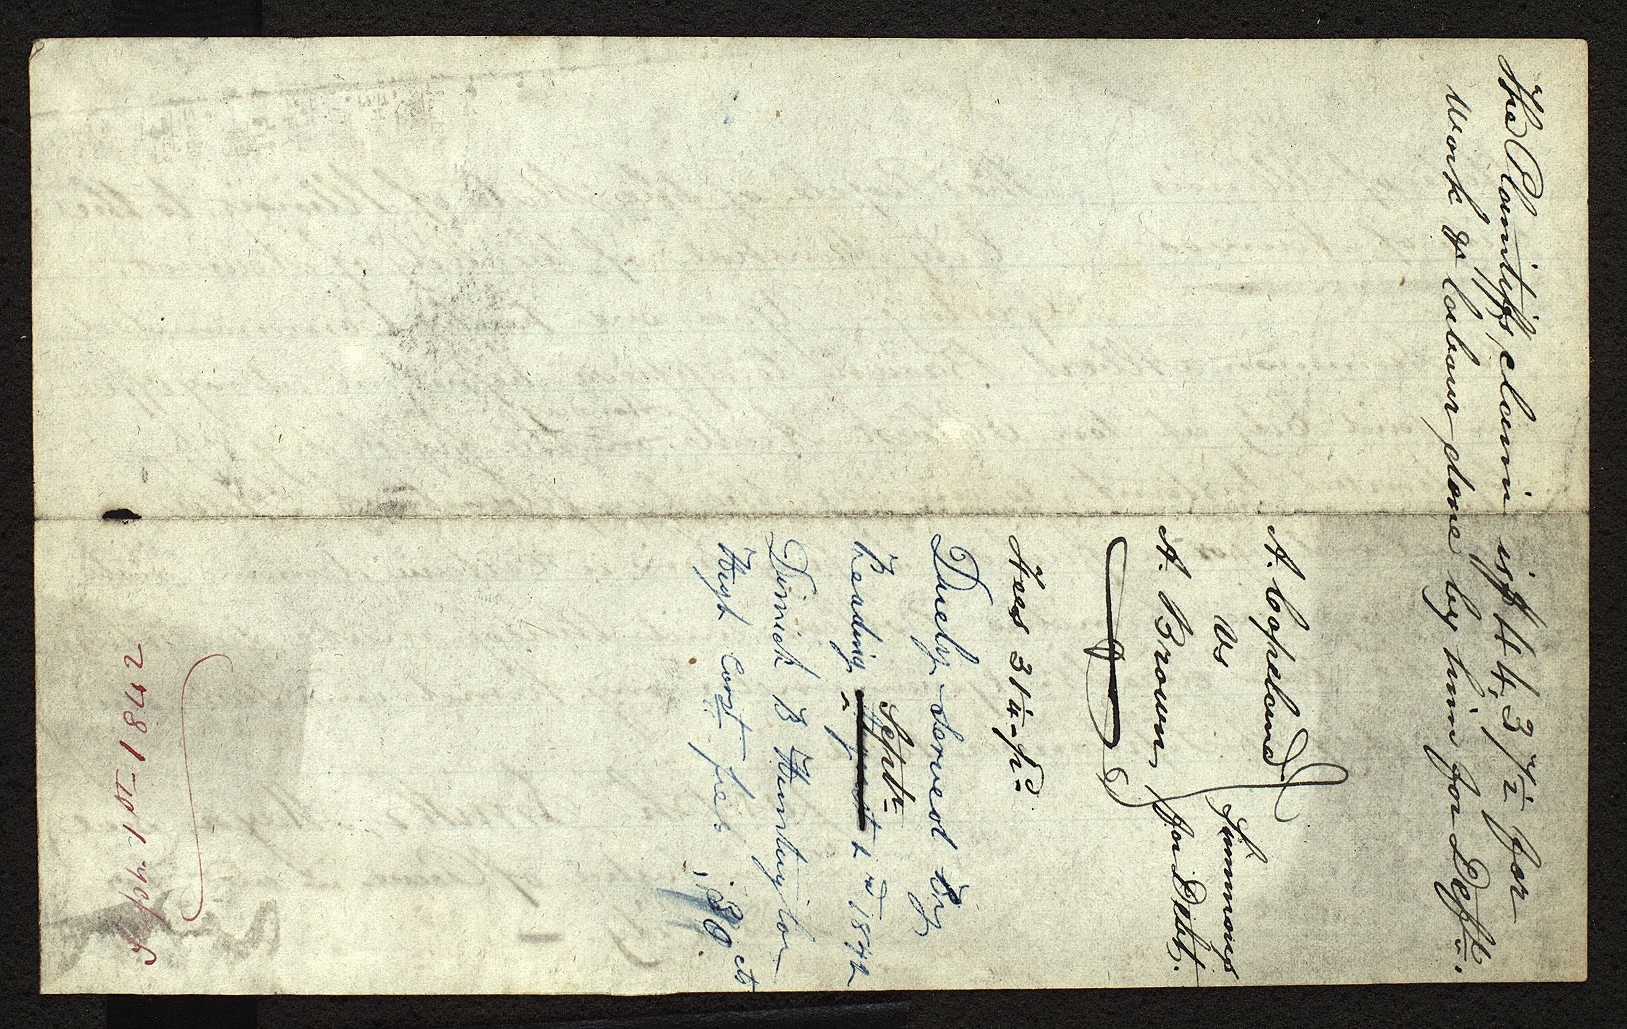 The Plaintiffs claim is $44,37½ for
Work & labour done by him for Deft.
A. Copeland
vs
A. Brown
Summons
for Debt.
Fees 31¼ pd.
Duely Served by
Reading Septr 2nd 1842
Dimick B Huntington
High Const fees .30 cts
Septr 1st 1842